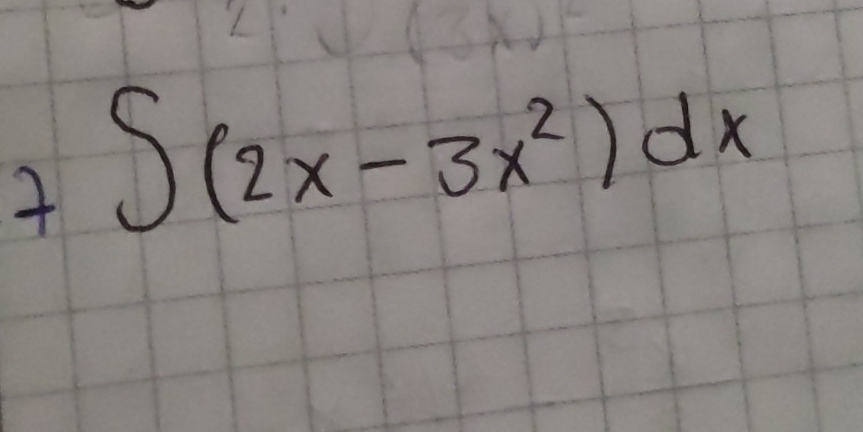 7 ∫(2x - 3x²) dx